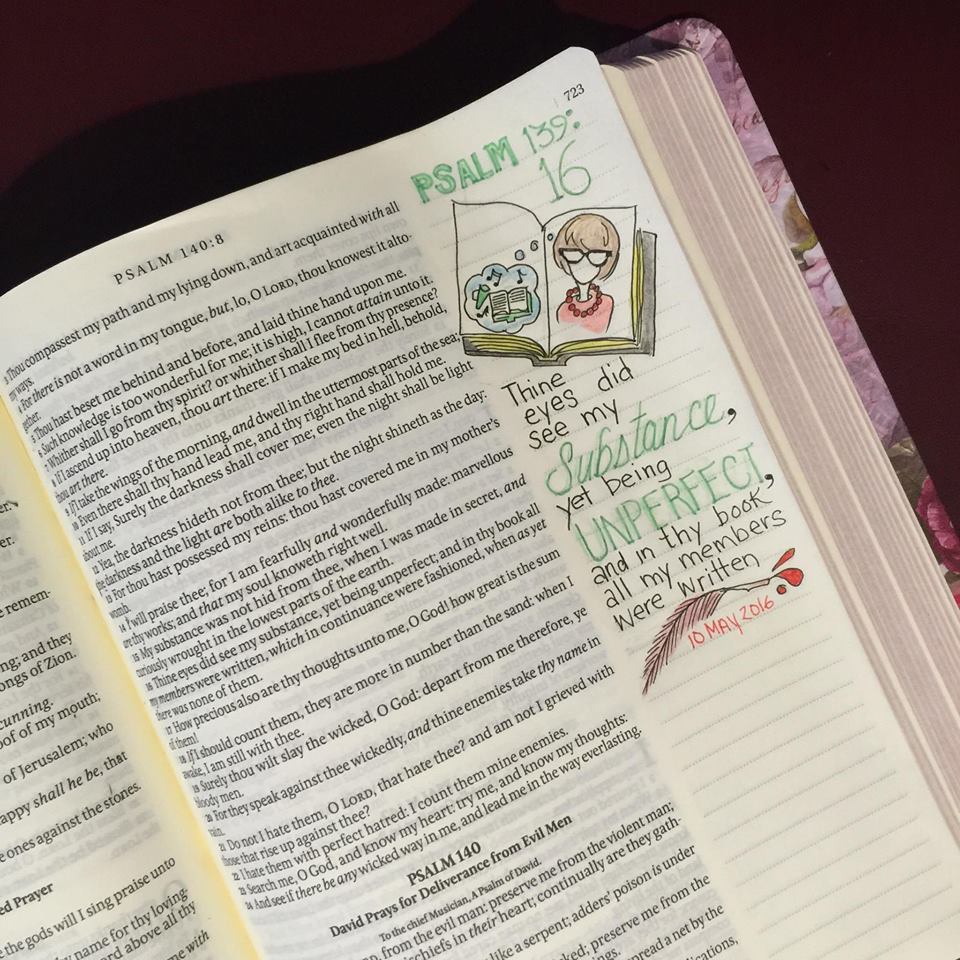 723
PSALM 140:8
3 Thou compassest my path and my lying down, and art acquainted with all
my ways.
4 For there is not a word in my tongue, but, lo, O LORD, thou knowest it alto-
gether.
5 Thou hast beset me behind and before, and laid thine hand upon me.
6 Such knowledge is too wonderful for me; it is high, I cannot attain unto it.
7 Whither shall I go from thy spirit? or whither shall I flee from thy presence?
8 If I ascend up into heaven, thou art there: if I make my bed in hell, behold,
thou art there.
9 If I take the wings of the morning, and dwell in the uttermost parts of the sea;
10 Even there shall thy hand lead me, and thy right hand shall hold me.
11 If I say, Surely the darkness shall cover me; even the night shall be light
about me.
12 Yea, the darkness hideth not from thee; but the night shineth as the day:
the darkness and the light are both alike to thee.
13 For thou hast possessed my reins: thou hast covered me in my mother's
womb.
14 I will praise thee; for I am fearfully and wonderfully made: marvellous
are thy works; and that my soul knoweth right well.
15 My substance was not hid from thee, when I was made in secret, and
curiously wrought in the lowest parts of the earth.
16 Thine eyes did see my substance, yet being unperfect; and in thy book all
my members were written, which in continuance were fashioned, when as yet
there was none of them.
17 How precious also are thy thoughts unto me, O God! how great is the sum
of them!
18 If I should count them, they are more in number than the sand: when I
awake, I am still with thee.
19 Surely thou wilt slay the wicked, O God: depart from me therefore, ye
bloody men.
20 For they speak against thee wickedly, and thine enemies take thy name in
vain.
21 Do not I hate them, O LORD, that hate thee? and am not I grieved with
those that rise up against thee?
22 I hate them with perfect hatred: I count them mine enemies.
23 Search me, O God, and know my heart: try me, and know my thoughts:
24 And see if there be any wicked way in me, and lead me in the way everlasting.
PSALM 140
David Prays for Deliverance from Evil Men
To the chief Musician, A Psalm of David.
from the evil man: preserve me from the violent man;
mischiefs in their heart; continually are they gath-
like a serpent; adders' poison is under
wicked; preserve me from the
spread a net by the
PSALM 139:
16
Thine
eyes did
see my
Substance,
yet being
UNPERFECT,
and in thy book
all my members
were written
10 MAY 2016
e remem-
ng, and they
ongs of Zion.
cunning.
oof of my mouth;
of Jerusalem; who
appy shall he be, that
e ones against the stones.
ed Prayer
the gods will I sing praise unto
name for thy loving-
ord above all thy
me with